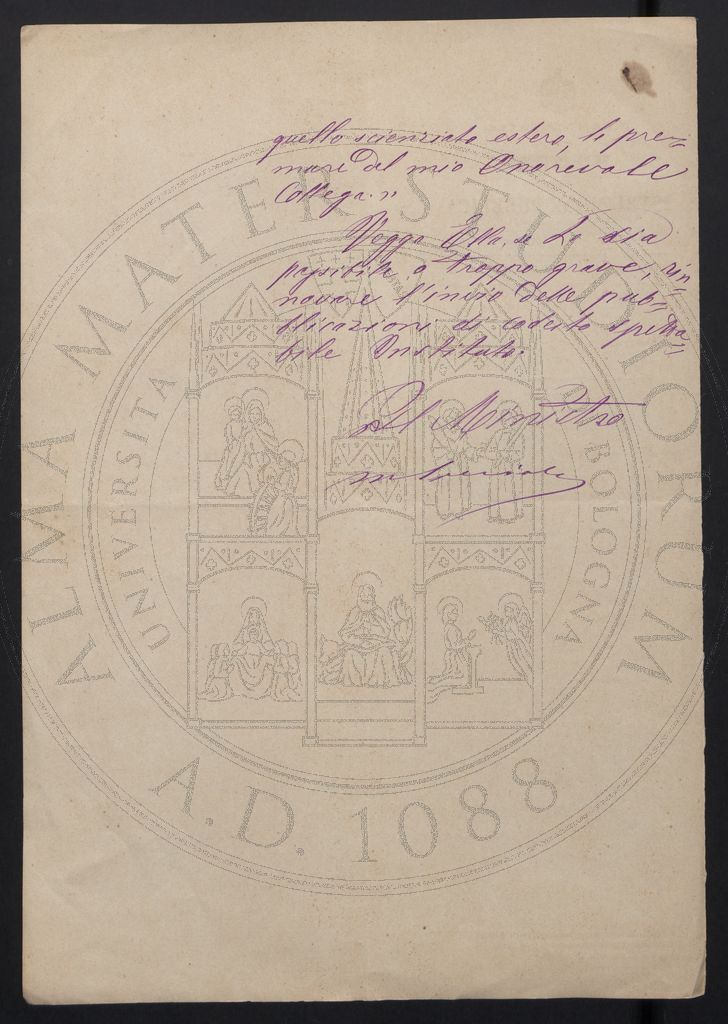 quello scienziato estero, le pre-
mure del mio Onorevole
Collega."
Vegga Ella, se Le sia
possibile o troppo grave, rin-
novare l'invio delle pub-
blicazioni di codesto spetta-
bile Instituto.
Il Ministro
ALMA MATER STUDIORUM
UNIVERSITA
BOLOGNA
A.D. 1088